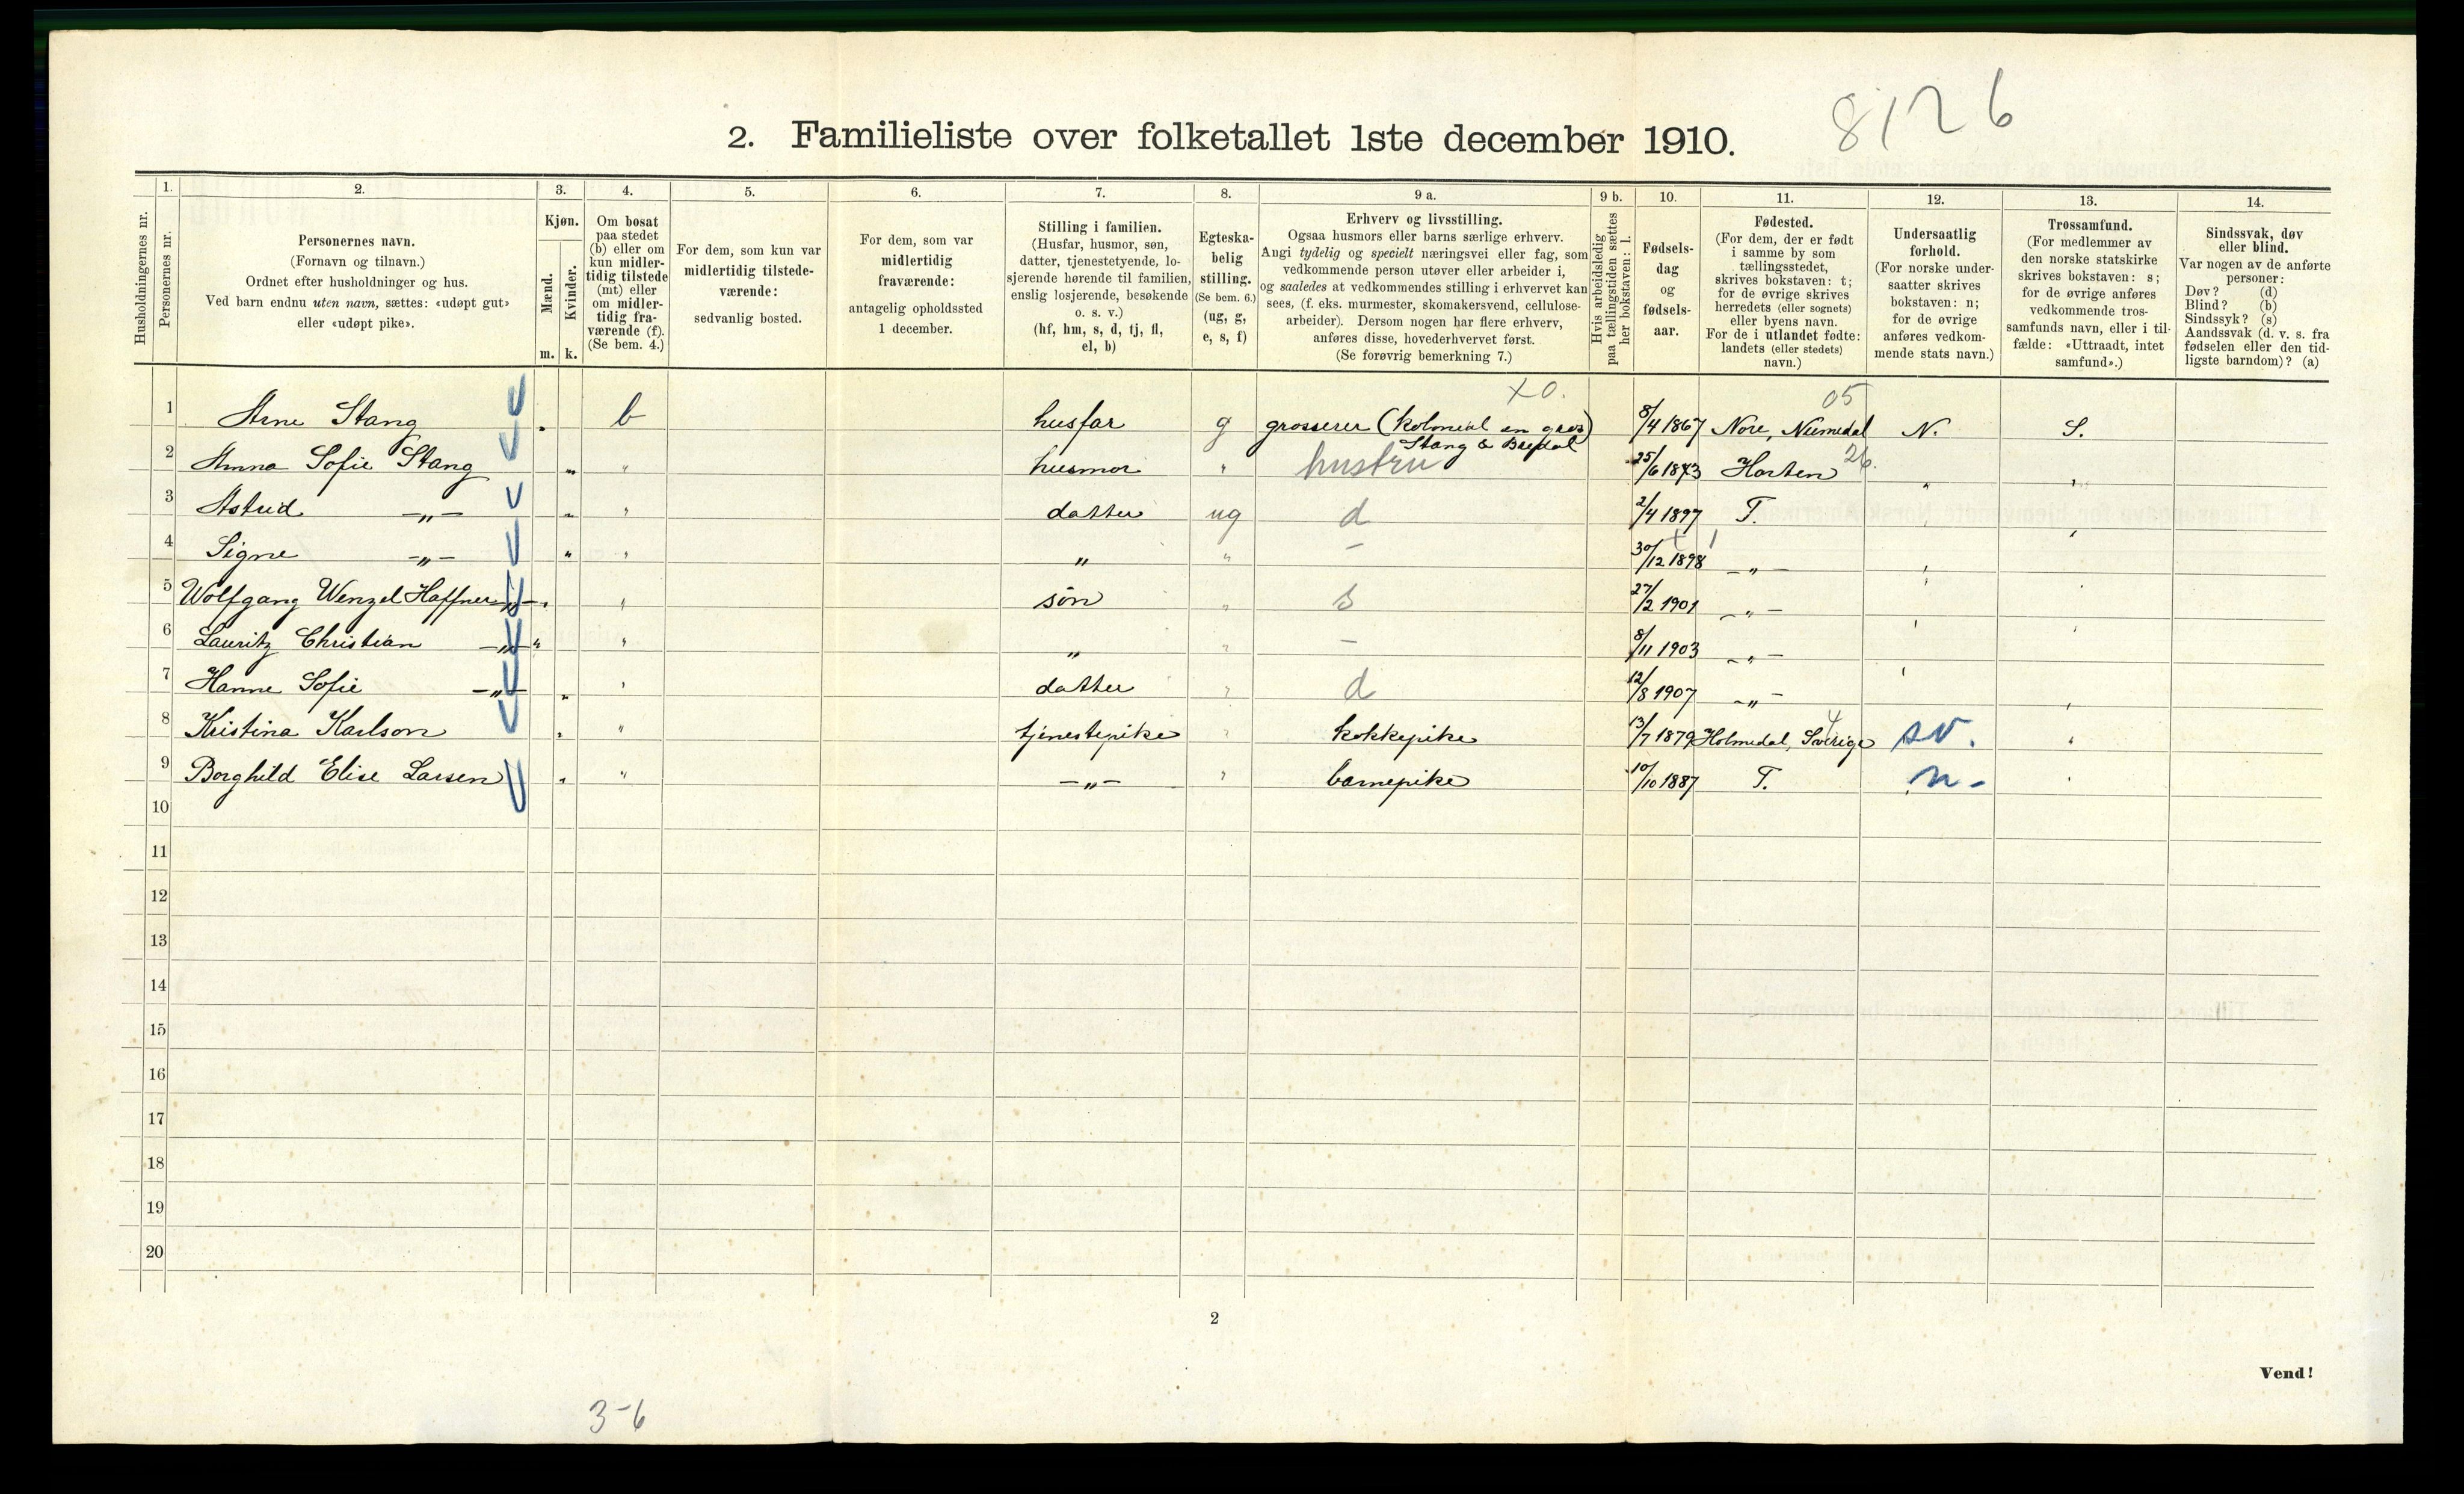 8126
2. Familieliste over folketallet 1ste december 1910.
Husholdningernes nr.
1.
Personernes nr.
2.
Personernes navn.
(Fornavn og tilnavn.)
Ordnet efter husholdninger og hus.
Ved barn endnu uten navn, sættes: «udøpt gut»
eller «udøpt pike».
3.
Kjøn.
Mænd.
Kvinder.
m. k.
4.
Om bosat
paa stedet
(b) eller om
kun midler-
tidig tilstede
(mt) eller
om midler-
tidig fra-
værende (f).
(Se bem. 4.)
5.
For dem, som kun var
midlertidig tilstede-
værende:
sedvanlig bosted.
6.
For dem, som var
midlertidig
fraværende:
antagelig opholdssted
1 december.
7.
Stilling i familien.
(Husfar, husmor, søn,
datter, tjenestetyende, lo-
sjerende hørende til familien,
enslig losjerende, besøkende
o. s. v.)
(hf, hm, s, d, tj, fl,
el, b)
8.
Egteska-
belig
stilling.
(Se bem. 6.)
(ug, g,
e, s, f)
9 a.
Erhverv og livsstilling.
Ogsaa husmors eller barns særlige erhverv.
Angi tydelig og specielt næringsvei eller fag, som
vedkommende person utøver eller arbeider i,
og saaledes at vedkommendes stilling i erhvervet kan
sees, (f. eks. murmester, skomakersvend, cellulose-
arbeider). Dersom nogen har flere erhverv,
anføres disse, hovederhvervet først.
(Se forøvrig bemerkning 7.)
9 b.
Hvis arbeidsledig
paa tællingstiden sættes
her bokstaven: l.
10.
Fødsels-
dag
og
fødsels-
aar.
11.
Fødested.
(For dem, der er født
i samme by som
tællingsstedet,
skrives bokstaven: t;
for de øvrige skrives
herredets (eller sognets)
eller byens navn.
For de i utlandet fødte:
landets (eller stedets)
navn.)
12.
Undersaatlig
forhold.
(For norske under-
saatter skrives
bokstaven: n;
for de øvrige
anføres vedkom-
mende stats navn.)
13.
Trossamfund.
(For medlemmer av
den norske statskirke
skrives bokstaven: s;
for de øvrige anføres
vedkommende tros-
samfunds navn, eller i til-
fælde: «Uttraadt, intet
samfund».)
14.
Sindssvak, døv
eller blind.
Var nogen av de anførte
personer:
Døv? (d)
Blind? (b)
Sindssyk? (s)
Aandssvak (d. v. s. fra
fødselen eller den tid-
ligste barndom)? (a)
X0. 05
1 Arne Stang " b husfar g grosserer (kolonial en gros) 8/4 1867 Nore, Numedal N. S.
Stang &
2 Anna Sofie Stang " " husmor " hustru 25/6 1873 Horten 26. " "
3 Astrid —"— " " datter ug d 2/4 1897 T. " "
4 Signe —"— " " " " — 30/12 1898 —"— " "
5 Wolfgang Wenzel Haffner —"— " " søn " s 27/2 1901 —"— " "
6 Lauritz Christian —"— " " " " — 8/11 1903 —"— " "
7 Hanne Sofie —"— " " datter " d 12/8 1907 —"— " "
8 Kristina Karlson " " tjenestepike " kokkepike 13/7 1879 Holmedal, Sverige sv. "
9 Borghild Elise Larsen " " —"— " barnepike 10/10 1887 T. n- "
10
11
12
13
14
15
16
17
18
19
20
2
Vend!
3-6